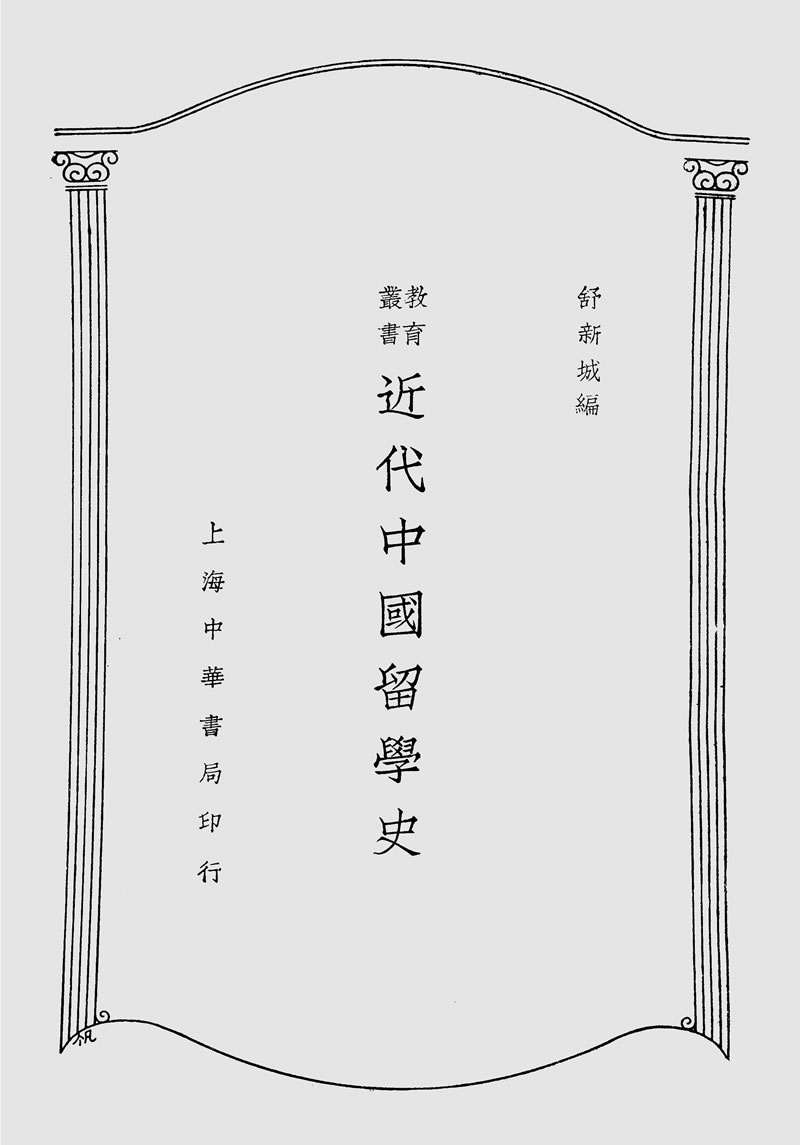 舒新城編
教育叢書
近代中國留學史
上海中華書局印行